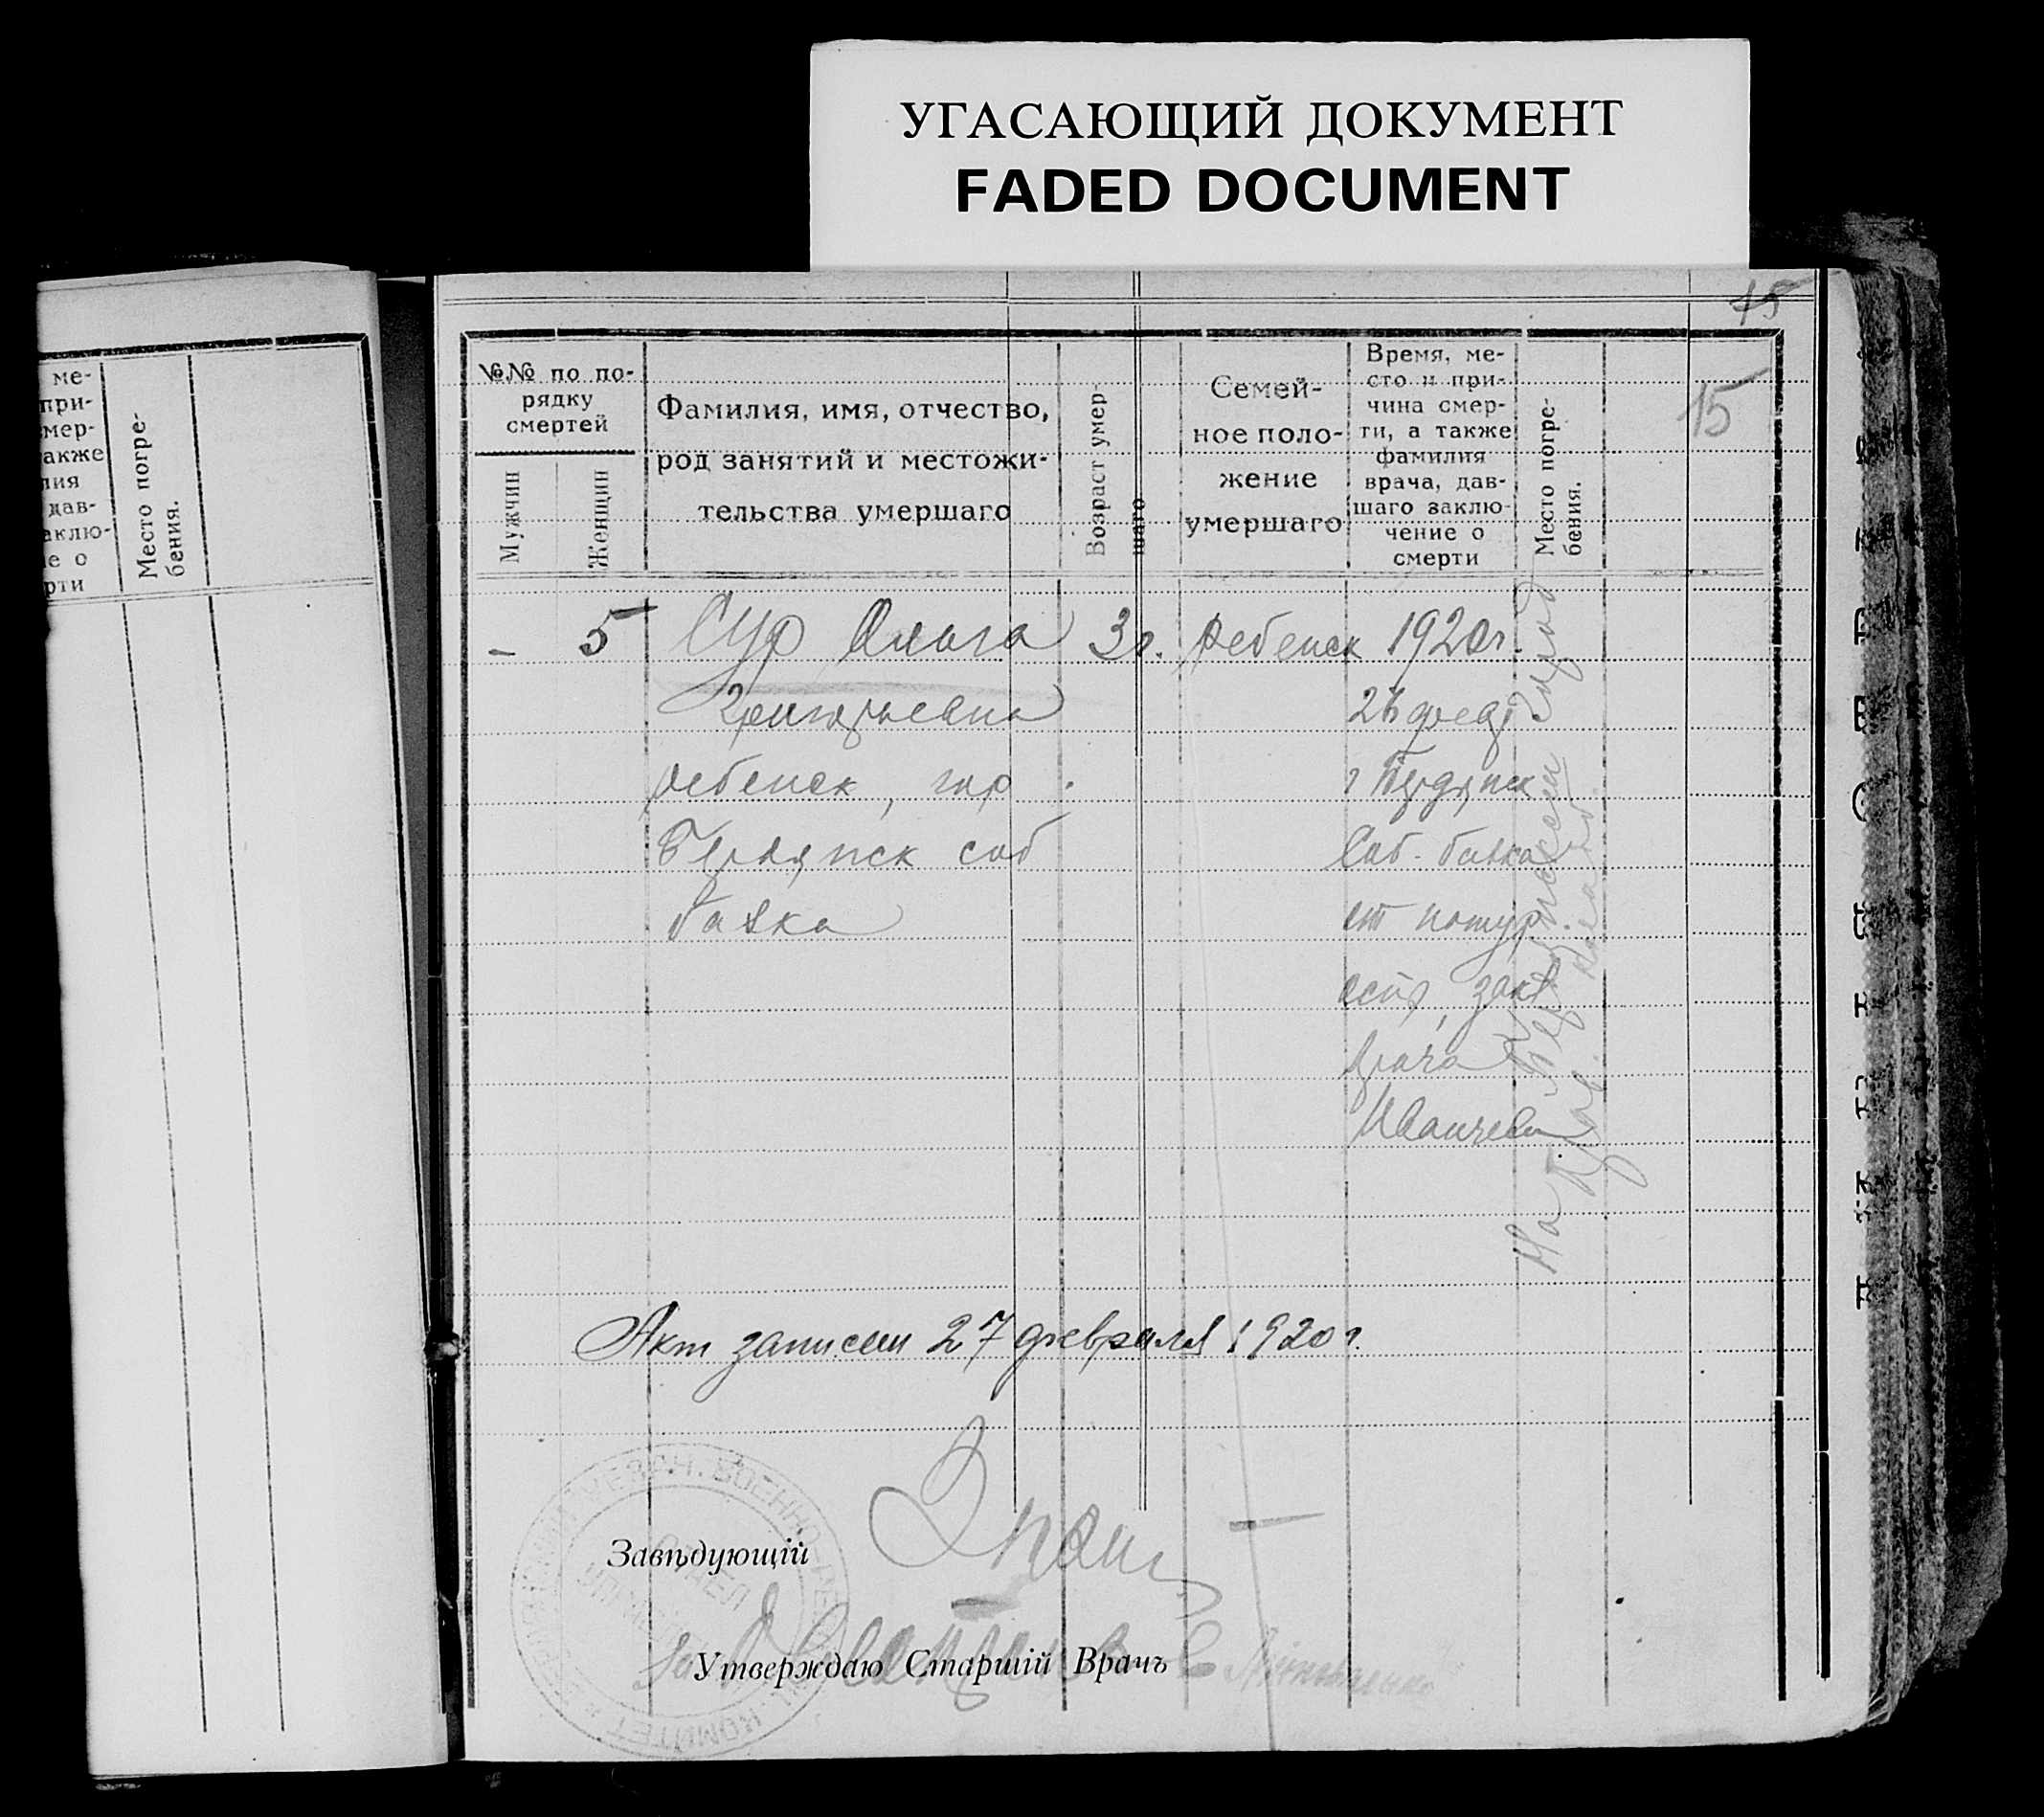 УГАСАЮЩИЙ ДОКУМЕНТ
FADED DOCUMENT
ме-
при-
мер-
акже
лия
дав-
аклю-
е о
рти
Место погре-
бения.
15
15
№№ по по-
рядку
смертей
Мужчин
Женщин
Фамилия, имя, отчество,
род занятий и местожи-
тельства умершаго
Возраст умер-
шаго
Семей-
ное поло-
жение
умершаго
Время, ме-
сто и при-
чина смер-
ти, а также
фамилия
врача, дав-
шаго заклю-
чение о
смерти
Место погре-
бения.
– 5 Сур Ольга 3 г. ребенок 1920 г.
Григорьевна
26 февр
ребенок, гор
г Бердянск
Бердянск соб
Соб. балка
балка
от натур
осп, закл
врача
На
город
Акт записан 27 февраля 1920 г.
Завѣдующій
Утверждаю Старшій Врачъ
ВОЕННО-
ОТДЕЛ
КОМИТЕТ